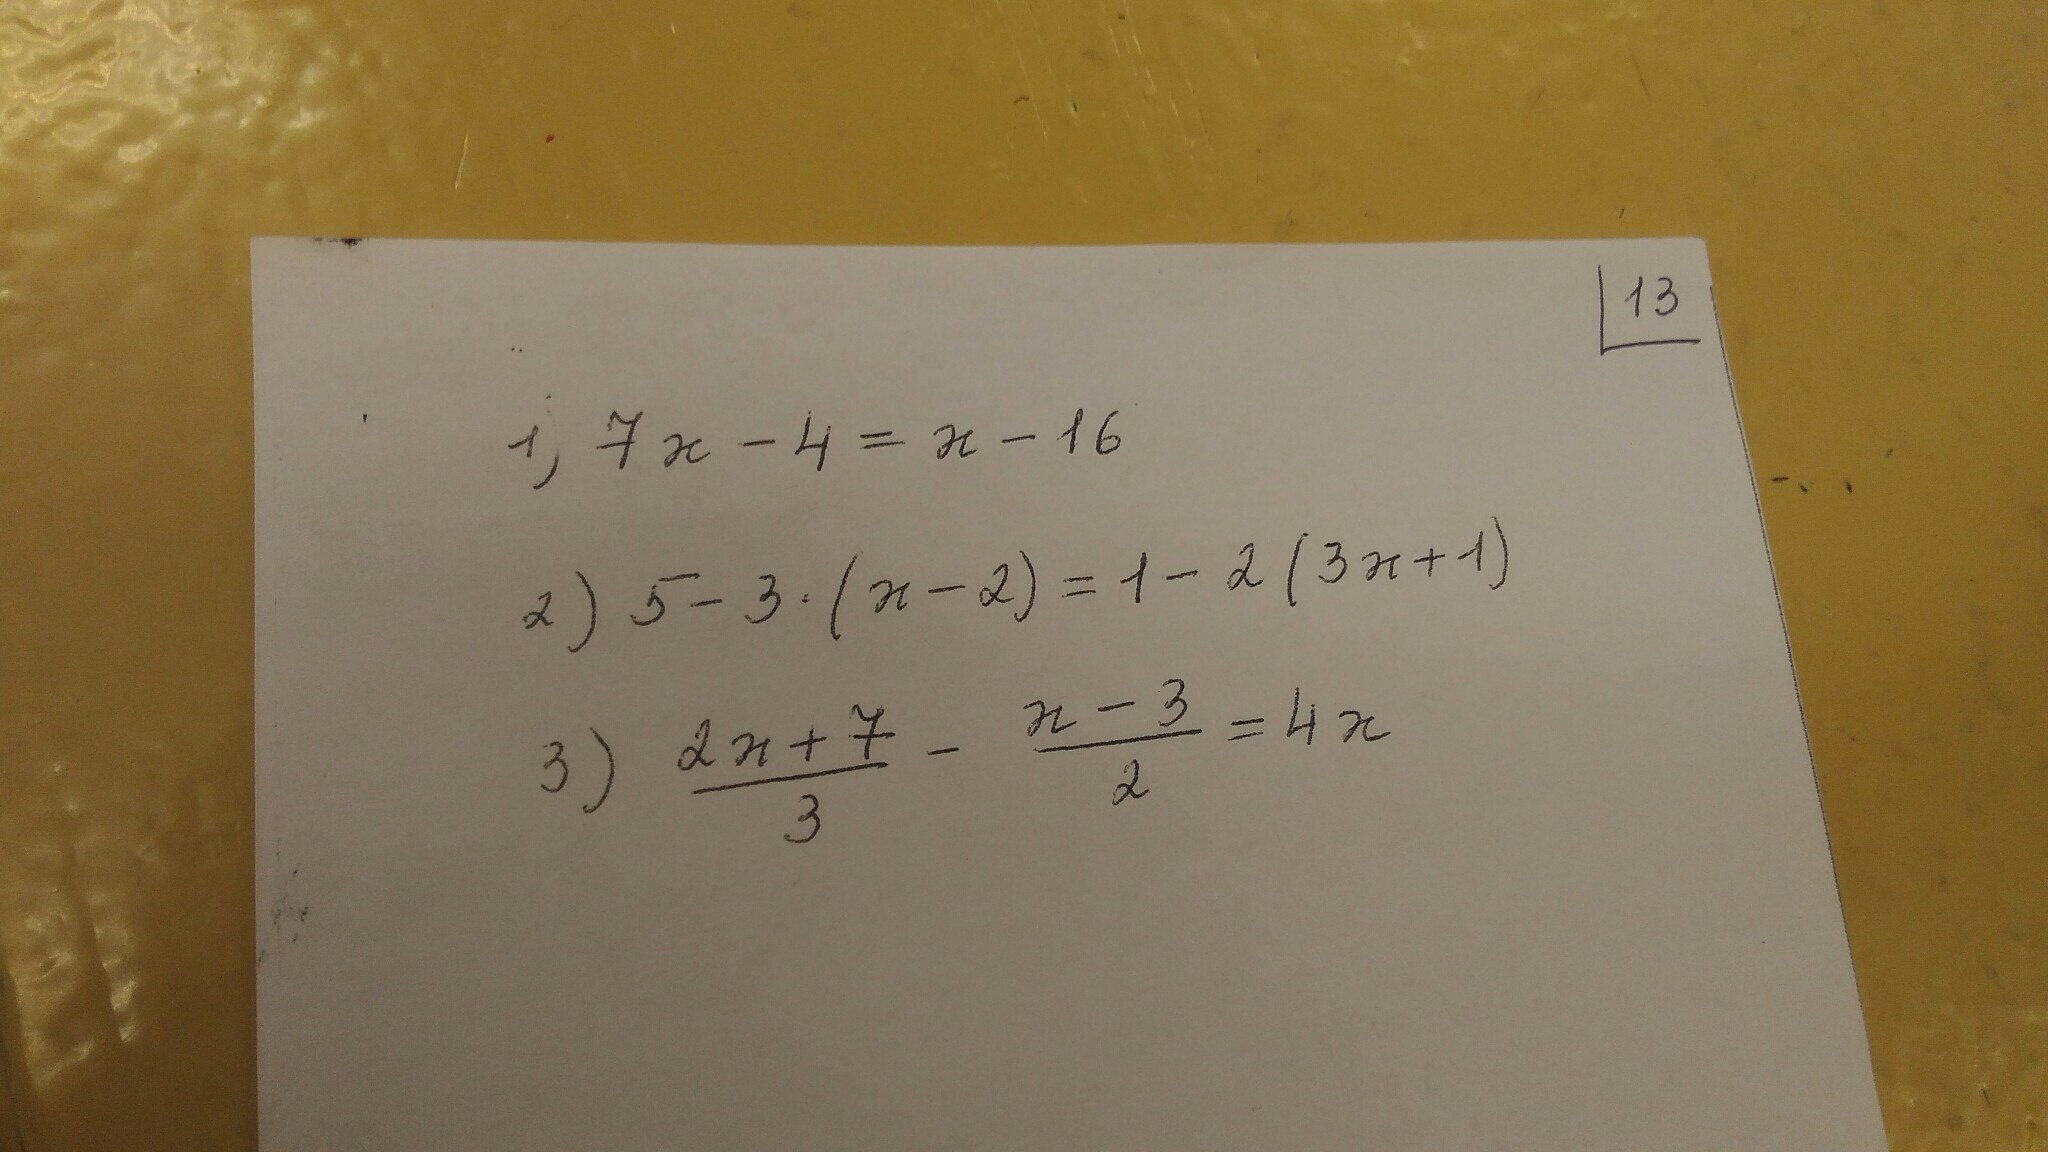 13
1, 7x - 4 = x - 16
2) 5 - 3 · (x - 2) = 1 - 2 (3x + 1)
3) \frac{2x + 7}{3} - \frac{x - 3}{2} = 4x